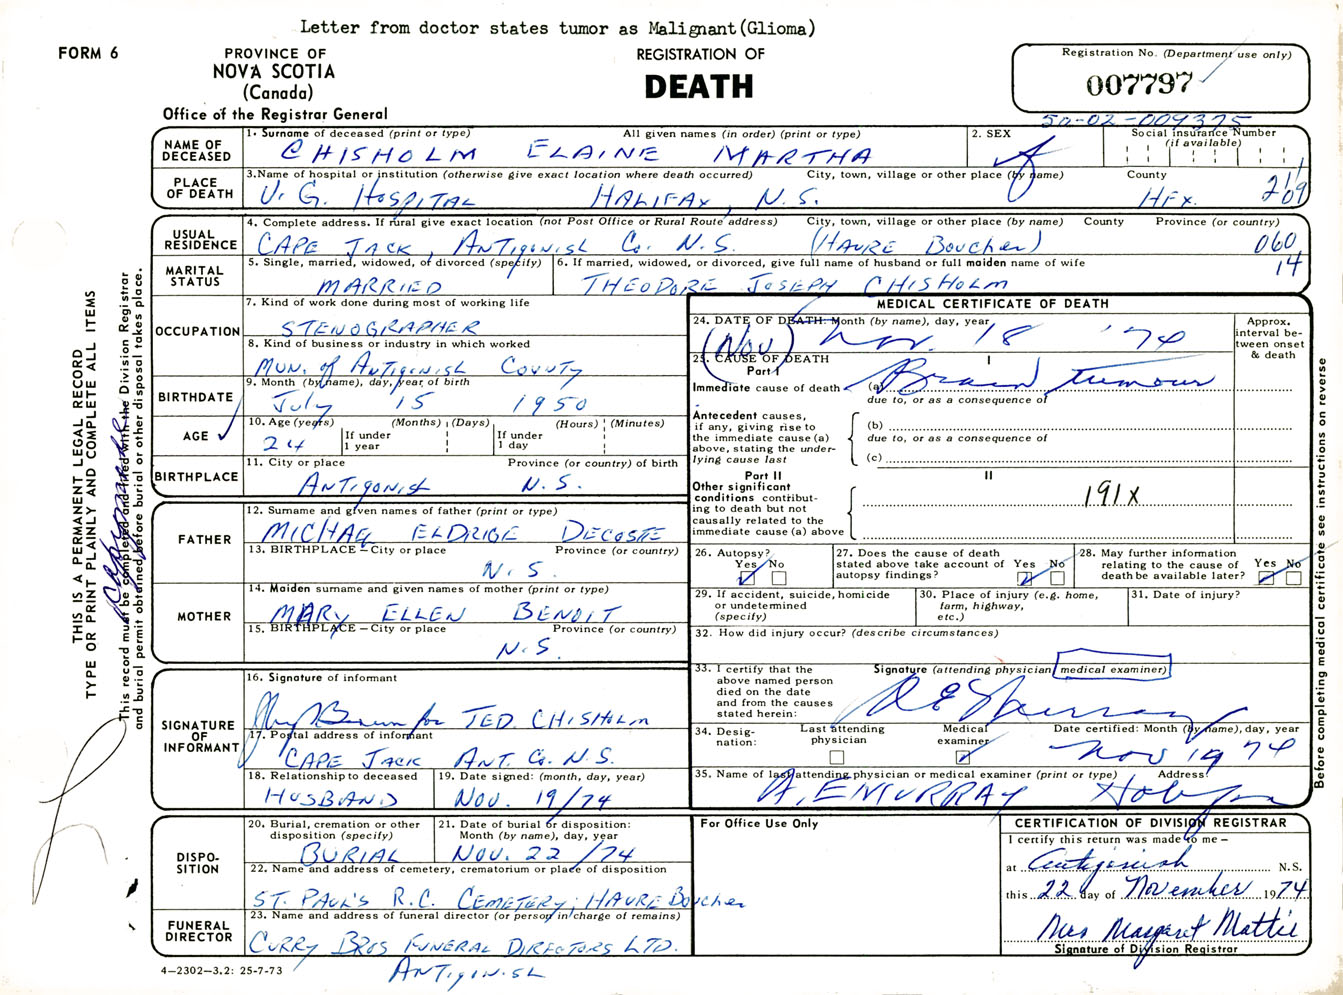 Letter from doctor states tumor as Malignant(Glioma)
FORM 6
PROVINCE OF
NOVA SCOTIA
(Canada)
Office of the Registrar General
REGISTRATION OF
DEATH
Registration No. (Department use only)
007797
50-02-009375
NAME OF DECEASED
1. Surname of deceased (print or type) All given names (in order) (print or type)
CHISHOLM ELAINE MARTHA
2. SEX
F
Social Insurance Number
(if available)
PLACE OF DEATH
3. Name of hospital or institution (otherwise give exact location where death occurred) City, town, village or other place (by name) County
V. G. HOSPITAL HALIFAX, N.S. HFX.
209
USUAL RESIDENCE
4. Complete address. If rural give exact location (not Post Office or Rural Route address) City, town, village or other place (by name) County Province (or country)
CAPE JACK, ANTIGONISH Co. N.S. (HAVRE BOUCHER) 060
14
MARITAL STATUS
5. Single, married, widowed, or divorced (specify)
MARRIED
6. If married, widowed, or divorced, give full name of husband or full maiden name of wife
THEODORE JOSEPH CHISHOLM
OCCUPATION
7. Kind of work done during most of working life
STENOGRAPHER
8. Kind of business or industry in which worked
MUN. of ANTIGONISH COUNTY
BIRTHDATE
9. Month (by name), day, year of birth
July 15 1950
AGE
10. Age (years) (Months) (Days) (Hours) (Minutes)
24 If under 1 year If under 1 day
BIRTHPLACE
11. City or place Province (or country) of birth
ANTIGONISH N.S.
FATHER
12. Surname and given names of father (print or type)
MICHAEL ELDRIGE DECOSTE
13. BIRTHPLACE – City or place Province (or country)
N.S.
MOTHER
14. Maiden surname and given names of mother (print or type)
MARY ELLEN BENOIT
15. BIRTHPLACE – City or place Province (or country)
N.S.
SIGNATURE OF INFORMANT
16. Signature of informant
for TED CHISHOLM
17. Postal address of informant
CAPE JACK ANT. Co. N.S.
18. Relationship to deceased
HUSBAND
19. Date signed: (month, day, year)
NOV. 19/74
DISPOSITION
20. Burial, cremation or other disposition (specify)
BURIAL
21. Date of burial or disposition: Month (by name), day, year
NOV. 22/74
22. Name and address of cemetery, crematorium or place of disposition
ST. PAUL'S R.C. CEMETERY; HAVRE BOUCHER
FUNERAL DIRECTOR
23. Name and address of funeral director (or person in charge of remains)
CURRY BROS FUNERAL DIRECTORS LTD.
ANTIGONISH
4–2302–3.2: 25-7-73
MEDICAL CERTIFICATE OF DEATH
24. DATE OF DEATH: Month (by name), day, year
(Nov) Nov. 18 '74
Approx. interval between onset & death
25. CAUSE OF DEATH
Part I
I
Immediate cause of death (a) Brain tumour
due to, or as a consequence of
Antecedent causes, if any, giving rise to the immediate cause (a) above, stating the underlying cause last
(b)
due to, or as a consequence of
(c)
Part II
II
Other significant conditions contributing to death but not causally related to the immediate cause (a) above
191X
26. Autopsy?
Yes No
27. Does the cause of death stated above take account of autopsy findings?
Yes No
28. May further information relating to the cause of death be available later?
Yes No
29. If accident, suicide, homicide or undetermined (specify)
30. Place of injury (e.g. home, farm, highway, etc.)
31. Date of injury?
32. How did injury occur? (describe circumstances)
33. I certify that the above named person died on the date and from the causes stated herein:
Signature (attending physician, medical examiner)
34. Designation: Last attending physician Medical examiner
Date certified: Month (by name), day, year
Nov 19 74
35. Name of last attending physician or medical examiner (print or type) Address
A. E MURRAY
For Office Use Only
CERTIFICATION OF DIVISION REGISTRAR
I certify this return was made to me –
at Antigonish N.S.
this 22 day of November 1974
Mrs Margaret Mattie
Signature of Division Registrar
THIS IS A PERMANENT LEGAL RECORD
TYPE OR PRINT PLAINLY AND COMPLETE ALL ITEMS
This record must be completed and filed with the Division Registrar
and burial permit obtained before burial or other disposal takes place.
Before completing medical certificate see instructions on reverse